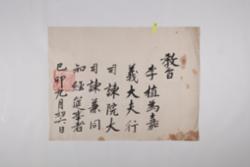 敎旨
李植爲嘉
義大夫行
司諫院大
司諫兼同
知經筵事者
己卯九月初六日